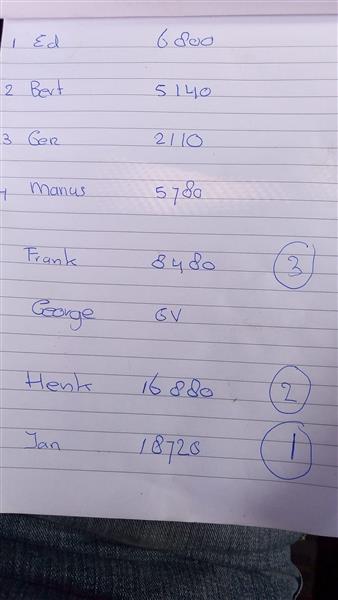 1 Ed 6800
2 Bert 5140
3 Ger 2110
4 Manus 5780
Frank 8480 3
George GV
Henk 16880 2
Jan 18720 1